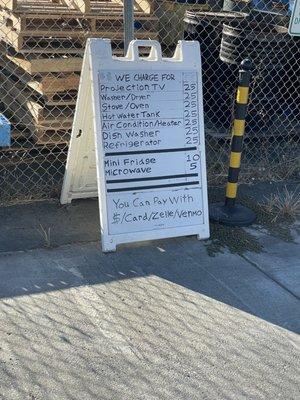 $$ WE CHARGE FOR
Projection TV 25
Washer/Dryer 25
Stove/Oven 25
Hot Water Tank 25
Air Condition/Heater 25
Dish Washer 25
Refrigerator 25
Mini Fridge 10
Microwave 5
You Can Pay With
$/Card/Zelle/Venmo